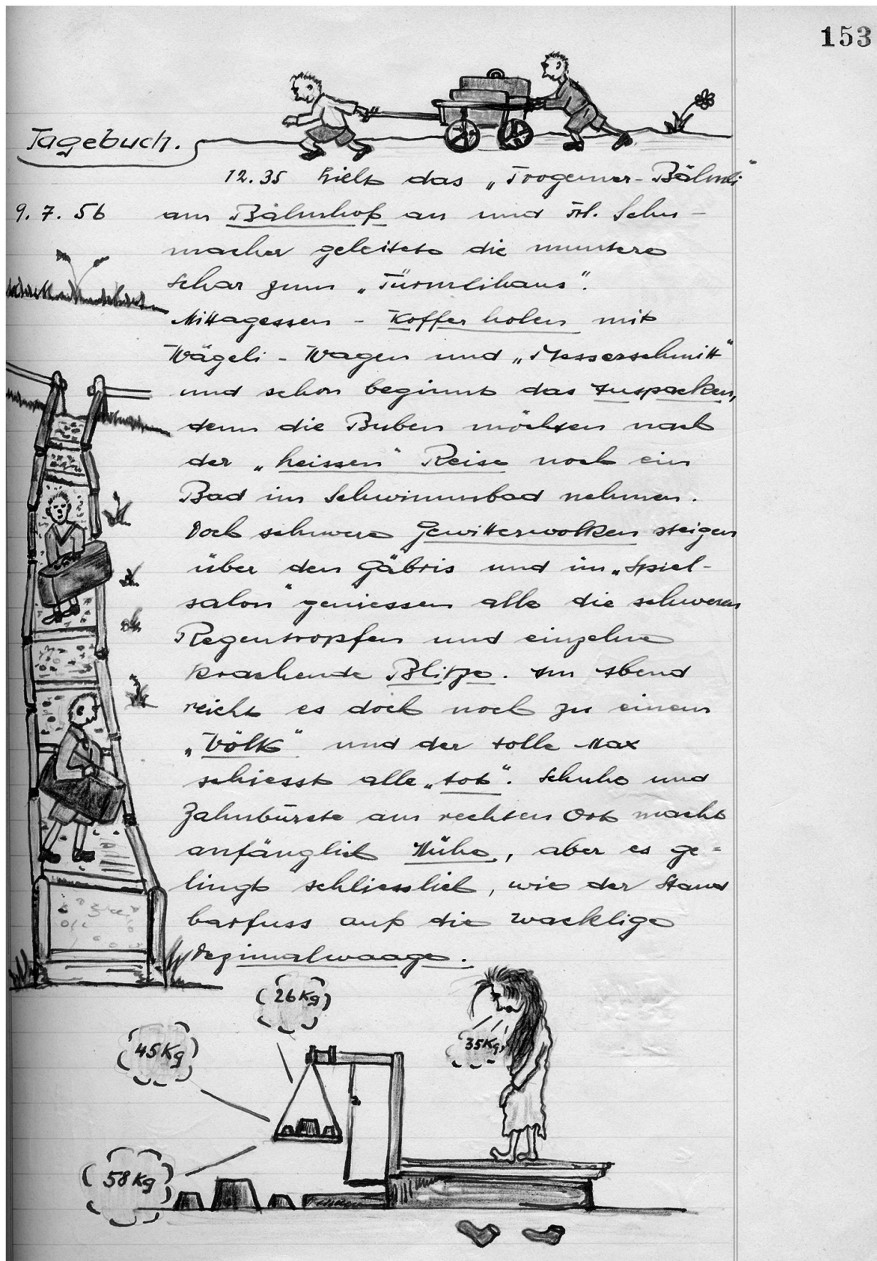 153
Tagebuch.
12.35 hielt das „Trogener-Bähnli"
9. 7. 56 am Bahnhof an und Frl. Schu-
macher geleitete die muntere
Schar zum „Türmlihaus".
Mittagessen - Koffer holen mit
Wägeli - Wagen und „Messerschmitt"
und schon beginnt das Auspacken,
denn die Buben möchten nach
der „heissen" Reise noch ein
Bad im Schwimmbad nehmen.
Doch schwere Gewitterwolken steigen
über den Gäbris und im „Spiel-
salon" geniessen alle die schweren
Regentropfen und einzelne
krachende Blitze. Am Abend
reicht es doch noch zu einem
„Völk" und der tolle Max
schiesst alle „tot". Schuhe und
Zahnbürste am rechten Ort macht
anfänglich Mühe, aber es ge-
lingt schliesslich, wie der Stand
barfuss auf die wacklige
Dezimalwaage.
26 Kg
45 Kg
35 Kg
58 Kg